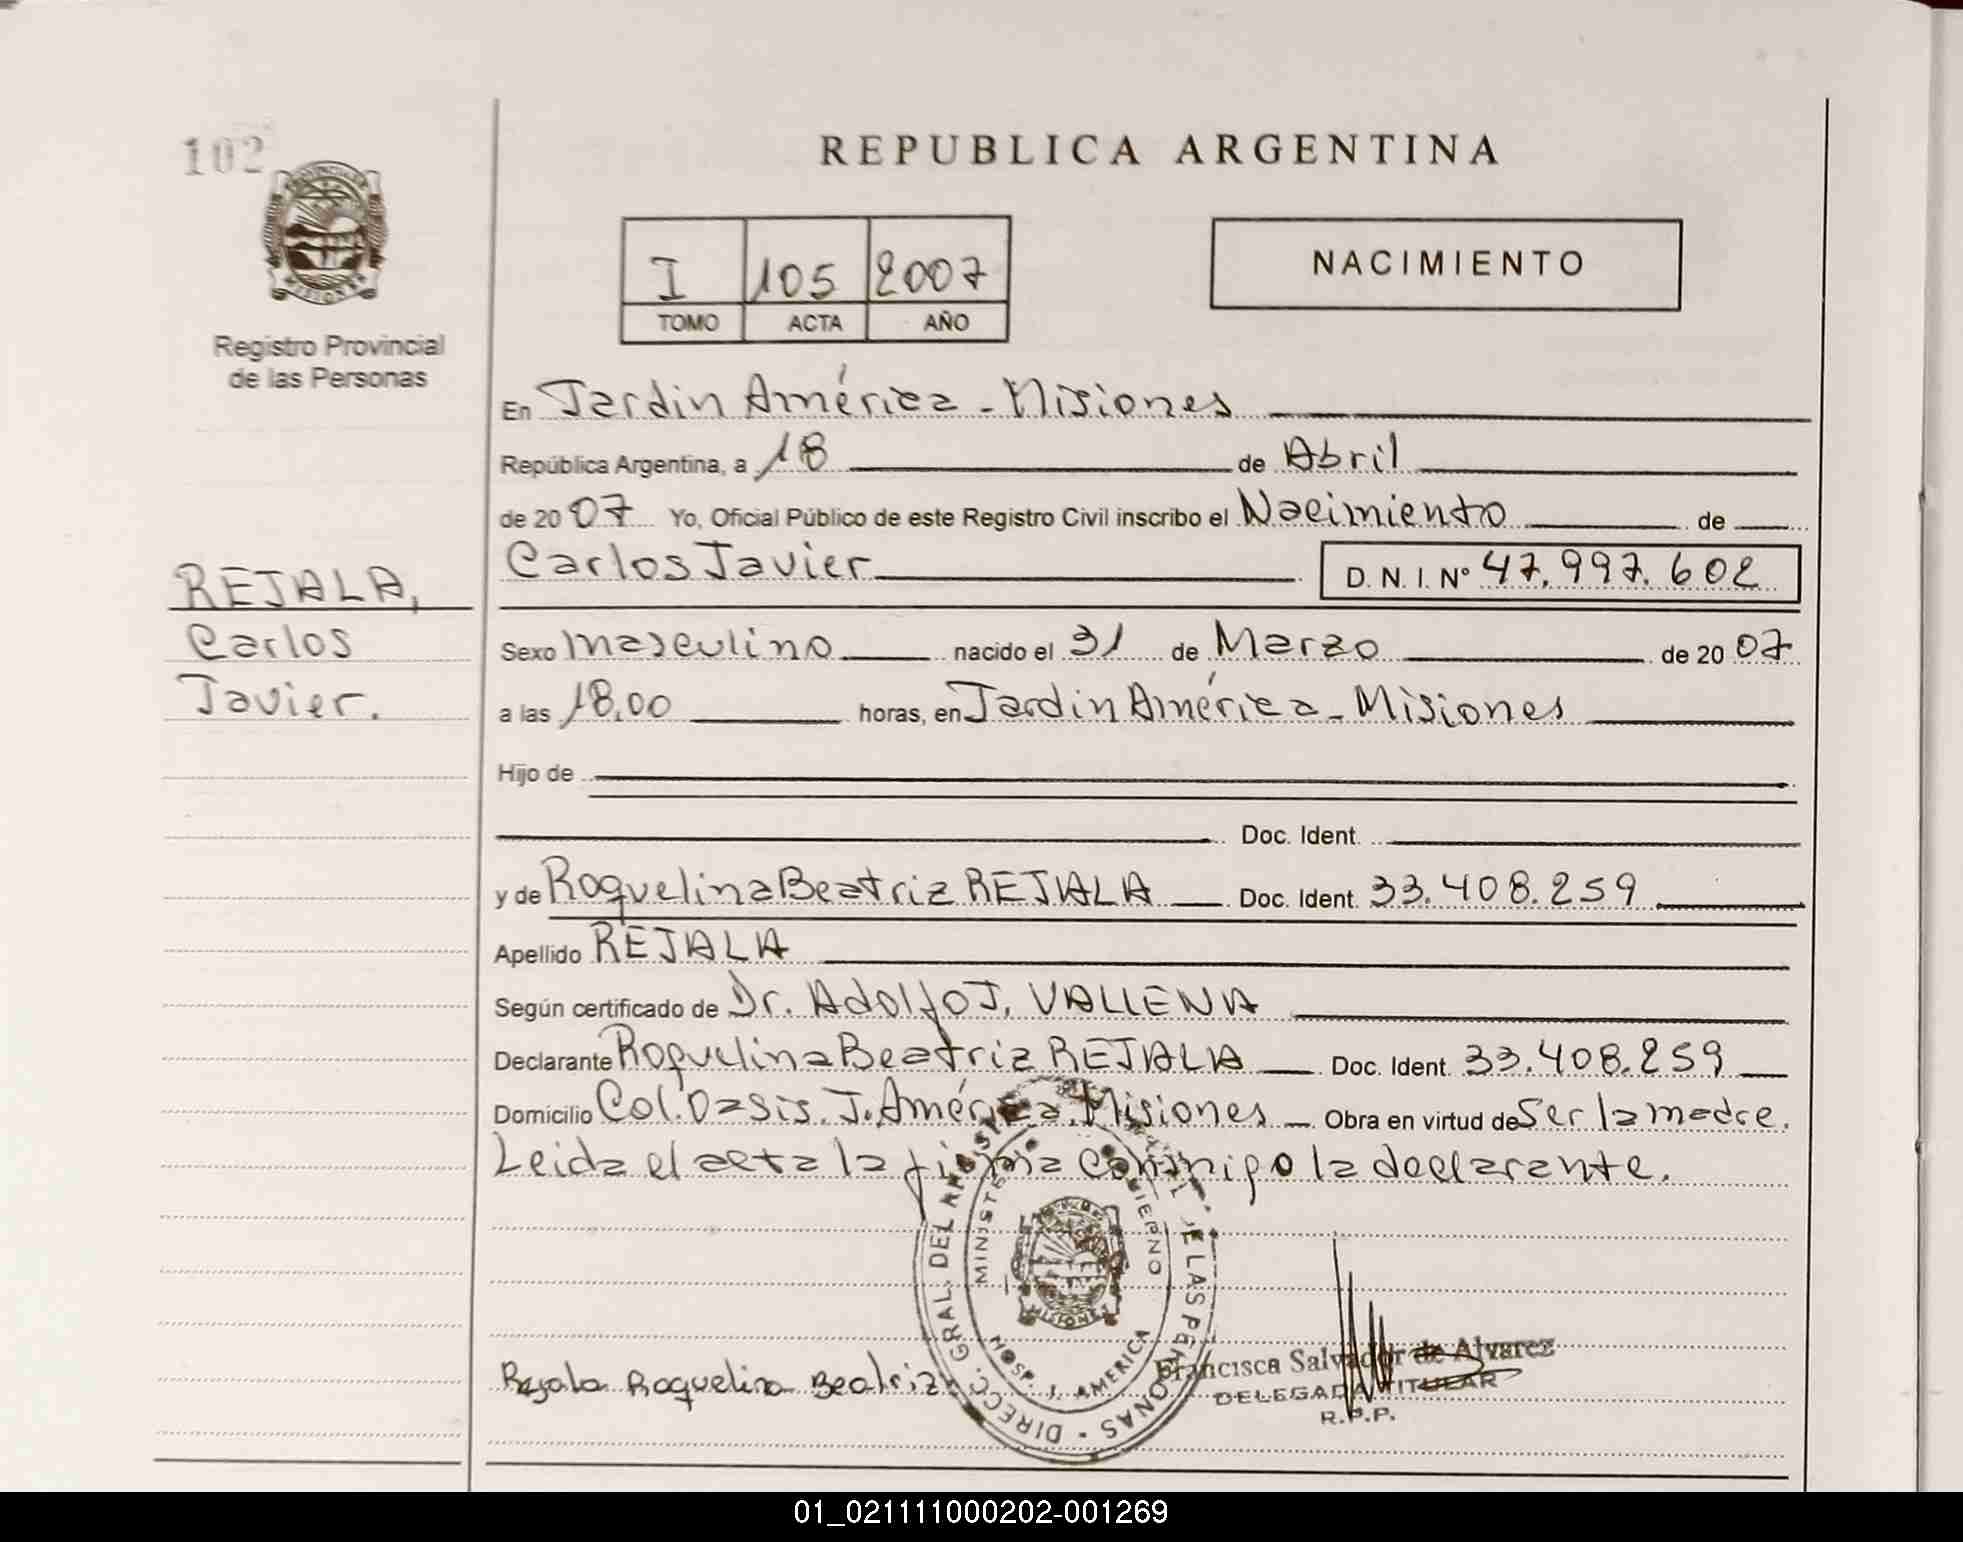 102
REPUBLICA ARGENTINA
PROVINCIA DE
MISIONES
Registro Provincial
de las Personas
I 105 2007
TOMO ACTA AÑO
NACIMIENTO
En Jardin América - Misiones
República Argentina, a 18 de Abril
de 2007 Yo, Oficial Público de este Registro Civil inscribo el Nacimiento de
Carlos Javier D. N. I. Nº 47.997.602
REJALA,
Carlos
Javier.
Sexo masculino nacido el 31 de Marzo de 2007
a las 18,00 horas, en Jardin América - Misiones
Hijo de
Doc. Ident.
y de Roquelina Beatriz REJALA Doc. Ident. 33.408.259
Apellido REJALA
Según certificado de Dr. Adolfo J. VALLENA
Declarante Roquelina Beatriz REJALA Doc. Ident. 33.408.259
Domicilio Col. Oasis. J. América. Misiones Obra en virtud de Ser la madre.
Leida el acta la firma conmigo la declarante.
DIRECC. GRAL. DEL DE LAS PERSONAS
MINISTERIO GOBIERNO
MISIONES
HOSP. J. AMERICA
Rejala Roquelina Beatriz
Francisca Salvador de Alvarez
DELEGADA TITULAR
R.P.P.
01_021111000202-001269